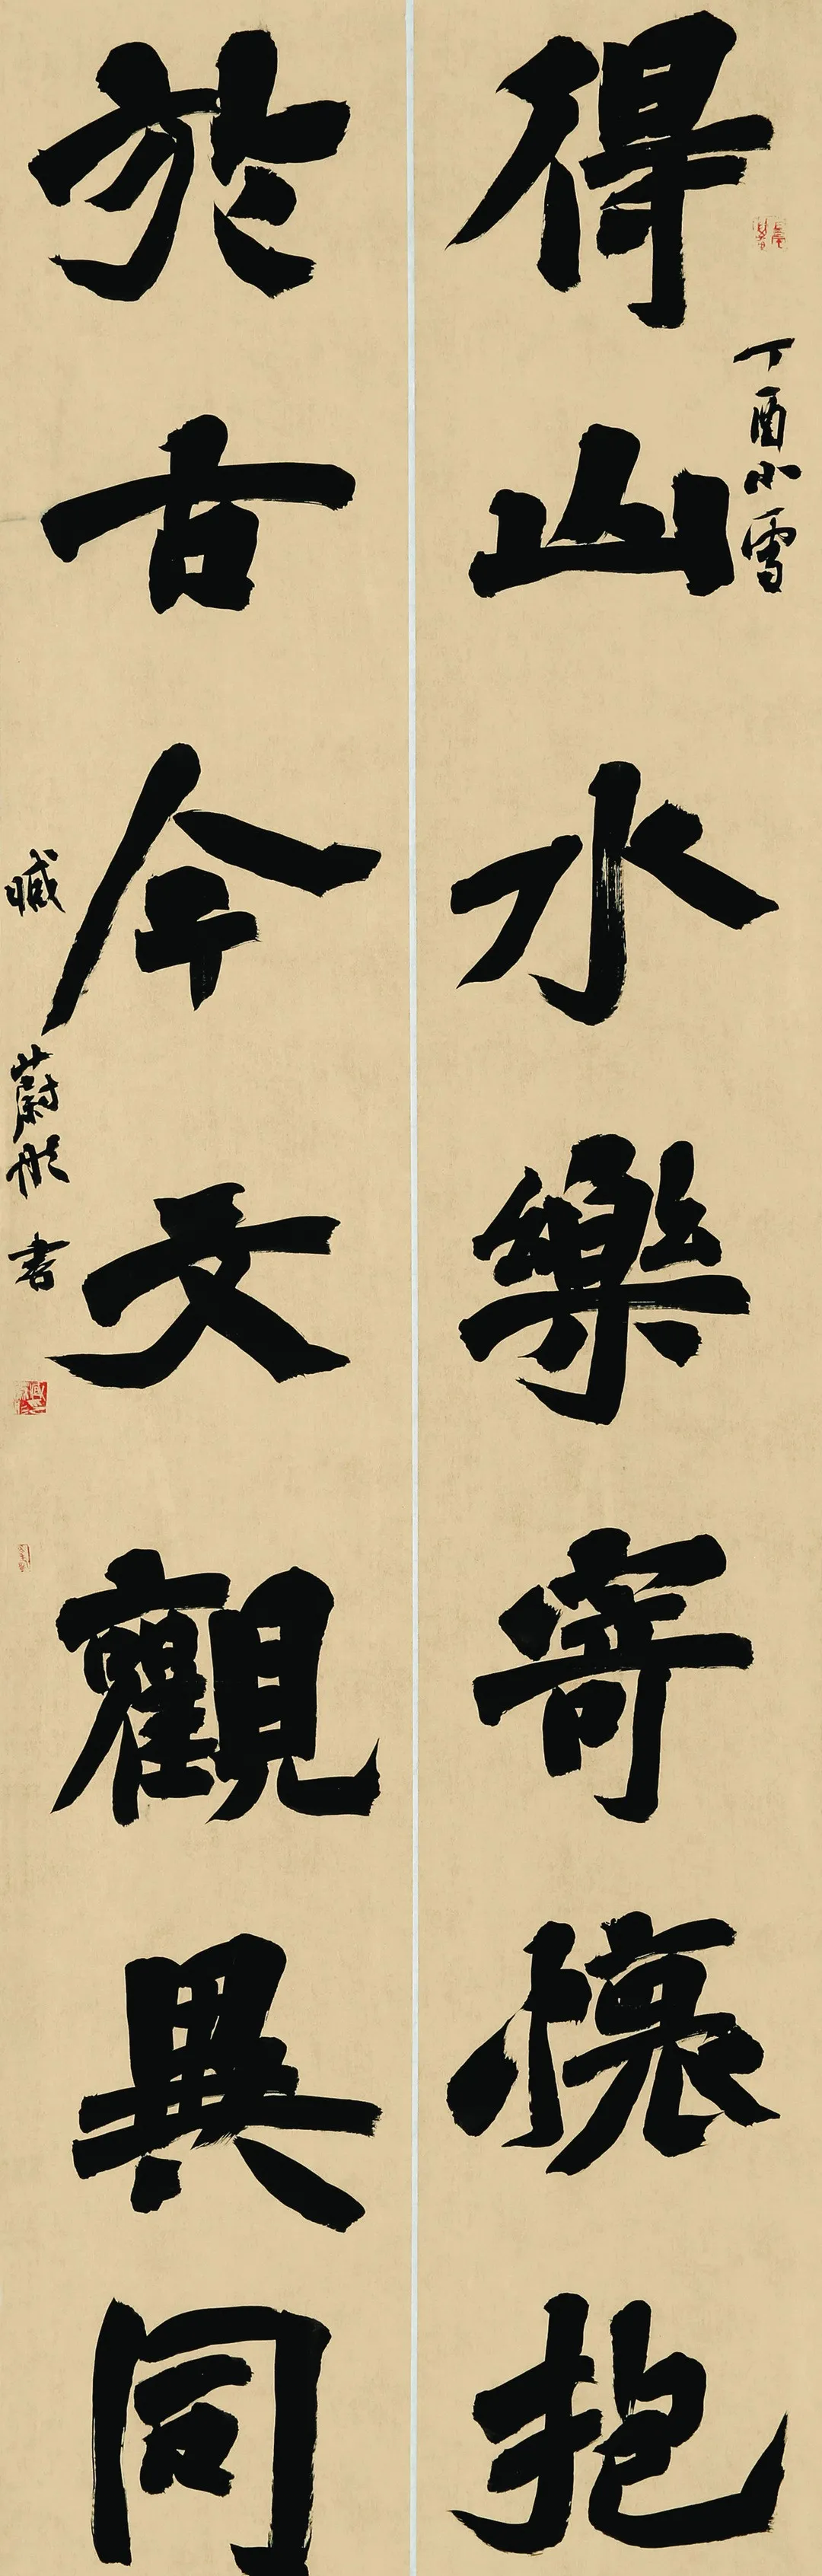 丁酉小雪
得山水樂寄懷抱
於古今文觀異同
蔚彤書